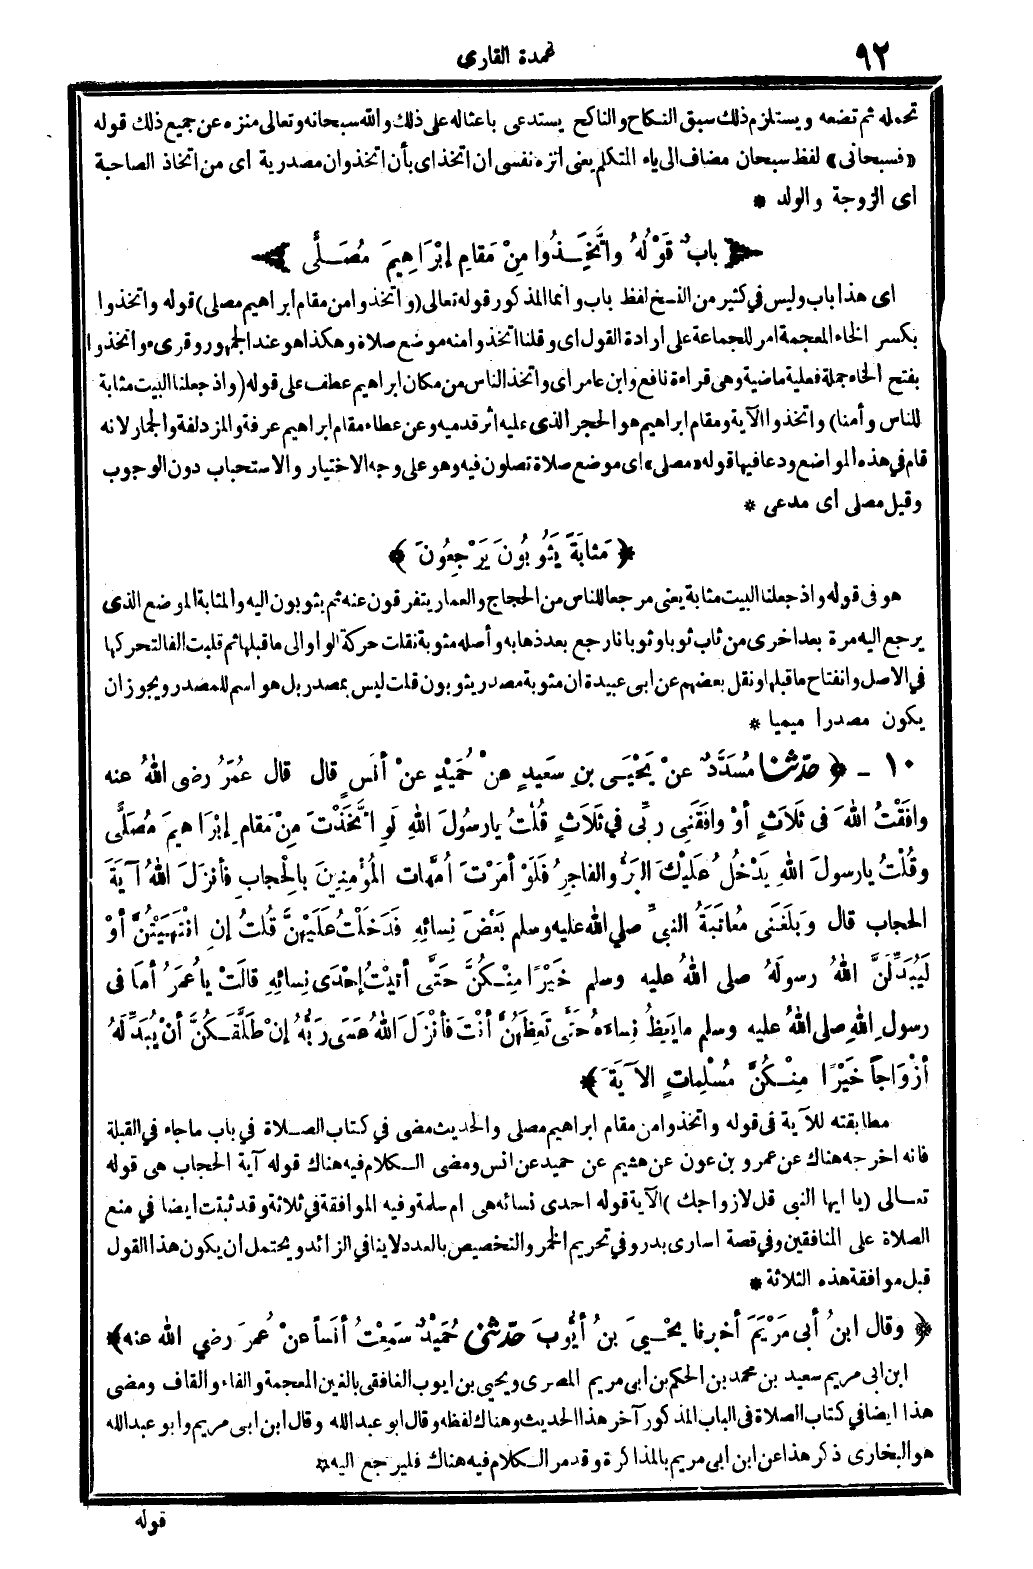 ٩٢
عمدة القارى
تحمله ثم تضعه ويستلزم ذلك سبق النكاح والناكح يستدعى باعثاله على ذلك والله سبحانه وتعالى منزه عن جميع ذلك قوله
«فسبحانى» لفظ سبحان مضاف الى ياء المتكلم يعنى انزه نفسى ان اتخذ اى بأن اتخذ وان مصدرية اى من اتخاذ الصاحبة
اى الزوجة والولد *
﴿ بابٌ قَوْلُهُ واتَّخِـذُوا مِنْ مَقامِ إِبْرَاهِيمَ مُصَـلًّى ﴾
اى هذا باب وليس فى كثير من النسخ لفظ باب وانما المذكور قوله تعالى (واتخذوا من مقام ابراهيم مصلى) قوله واتخذوا
بكسر الخاء المعجمة امر للجماعة على ارادة القول اى وقلنا اتخذوا منه موضع صلاة وهكذا هو عند الجمهور وقرىء واتخذوا
بفتح الخاء جملة فعلية ماضية وهى قراءة نافع وابن عامر اى واتخذ الناس من مكان ابراهيم عطف على قوله (واذ جعلنا البيت مثابة
للناس وأمنا) واتخذوا الآية ومقام ابراهيم هو الحجر الذى عليه اثر قدميه وعن عطاء مقام ابراهيم عرفة والمزدلفة والجمار لانه
قام فى هذه المواضع ودعا فيها قوله «مصلى» اى موضع صلاة تصلون فيه وهو على وجه الاختيار والاستحباب دون الوجوب
وقيل مصلى أى مدعى *
﴿ مَثابَةً يَثُوبُونَ يَرْجِعُونَ ﴾
هو فى قوله واذ جعلنا البيت مثابة يعنى مرجعا للناس من الحجاج والعمار يتفرقون عنه ثم يثوبون اليه والمثابة الموضع الذى
يرجع اليه مرة بعد اخرى من ثاب ثوبا وثوبانا رجع بعد ذهابه وأصله مثوبة نقلت حركة الواو الى ما قبلها ثم قلبت الفا لتحركها
فى الاصل وانفتاح ما قبلها ونقل بعضهم عن ابى عبيدة ان مثوبة مصدر يثوبون قلت ليس بمصدر بل هو اسم للمصدر ويجوز ان
يكون مصدرا ميميا *
١٠ ـ ﴿ حدّثنا مُسَدَّدٌ عنْ يَحْيَـى بنِ سَعِيدٍ عنْ حُمَيْدٍ عنْ أنَسٍ قال قال عُمَرُ رضى اللهُ عنه
وافَقْتُ اللهَ فى ثَلاَثٍ أوْ وافَقَنِى رَبِّى فى ثَلاَثٍ قُلْتُ يارسُولَ اللهِ لَوِ اتَّخَذْتَ مِنْ مَقامِ إِبْرَاهِيمَ مُصَلًّى
وقُلْتُ يارسولَ اللهِ يَدْخُلُ عَلَيْكَ البَرُّ والفاجِرُ فَلَوْ أمَرْتَ أُمَّهاتِ المُؤْمِنِينَ بالْحِجابِ فأنزَلَ اللهُ آيَةَ
الحجاب قال وبَلَغَنِى مُعاتَبَةُ النبىِّ صلى الله عليه وسلم بَعْضَ نِسائِهِ فَدَخَلْتُ عَلَيْهِنَّ قُلْتُ إنِ انْتَهَيْتُنَّ أوْ
لَيُبَدِّلَنَّ اللهُ رسولَهُ صلى اللهُ عليه وسلم خَيْرًا مِنْـكُنَّ حَتَّى أتَيْتُ إحْدَى نِسائِهِ قالَتْ ياعُمَرُ أما فى
رسولِ اللهِ صلى اللهُ عليه وسلم ما يَعِظُ نِساءَهُ حَتَّى تَعِظَهُنَّ أنْتَ فأنْزَلَ اللهُ عَسَى رَبُّهُ إنْ طَلَّقَـكُنَّ أنْ يُبَدِّلَهُ
أزْوَاجاً خَيْرًا مِنْـكُنَّ مُسْلِماتٍ الآيَةَ ﴾
مطابقته للآية فى قوله واتخذوا من مقام ابراهيم مصلى والحديث مضى في كتاب الصـلاة في باب ماجاء فى القبلة
فانه اخرجه هناك عن عمرو بن عون عن هشيم عن حميد عن انس ومضى الـكلام فيه هناك قوله آية الحجاب هى قوله
تعـالى (يا ايها النبى قل لازواجك) الآية قوله احدى نسائه هى ام سلمة وفيه الموافقة فى ثلاثة وقد ثبتت ايضا في منع
الصلاة على المنافقين وفى قصة اسارى بدر وفي تحريم الخمر والتخصيص بالعدد لاينافى الزائد ويحتمل ان يكون هذا القول
قبل موافقة هذه الثلاثة *
﴿ وقال ابنُ أبى مَرْيَمَ أخبرنا يَحْـيَى بنُ أيُّوبَ حدّثنى حُمَيْدٌ سَمِعْتُ أنَساً عنْ عُمرَ رضي الله عنه ﴾
ابن ابى مريم سعيد بن محمد بن الحكم بن ابى مريم المصرى ويحيى بن ايوب الغافقى بالغين المعجمة والفاء والقاف ومضى
هذا ايضا في كتاب الصلاة فى الباب المذكور آخر هذا الحديث وهناك لفظه وقال ابو عبد الله وقال ابن ابى مريم وابو عبد الله
هو البخارى ذكر هذا عن ابن ابى مريم بالمذاكرة وقد مر الـكلام فيه هناك فليرجع اليه *
قوله